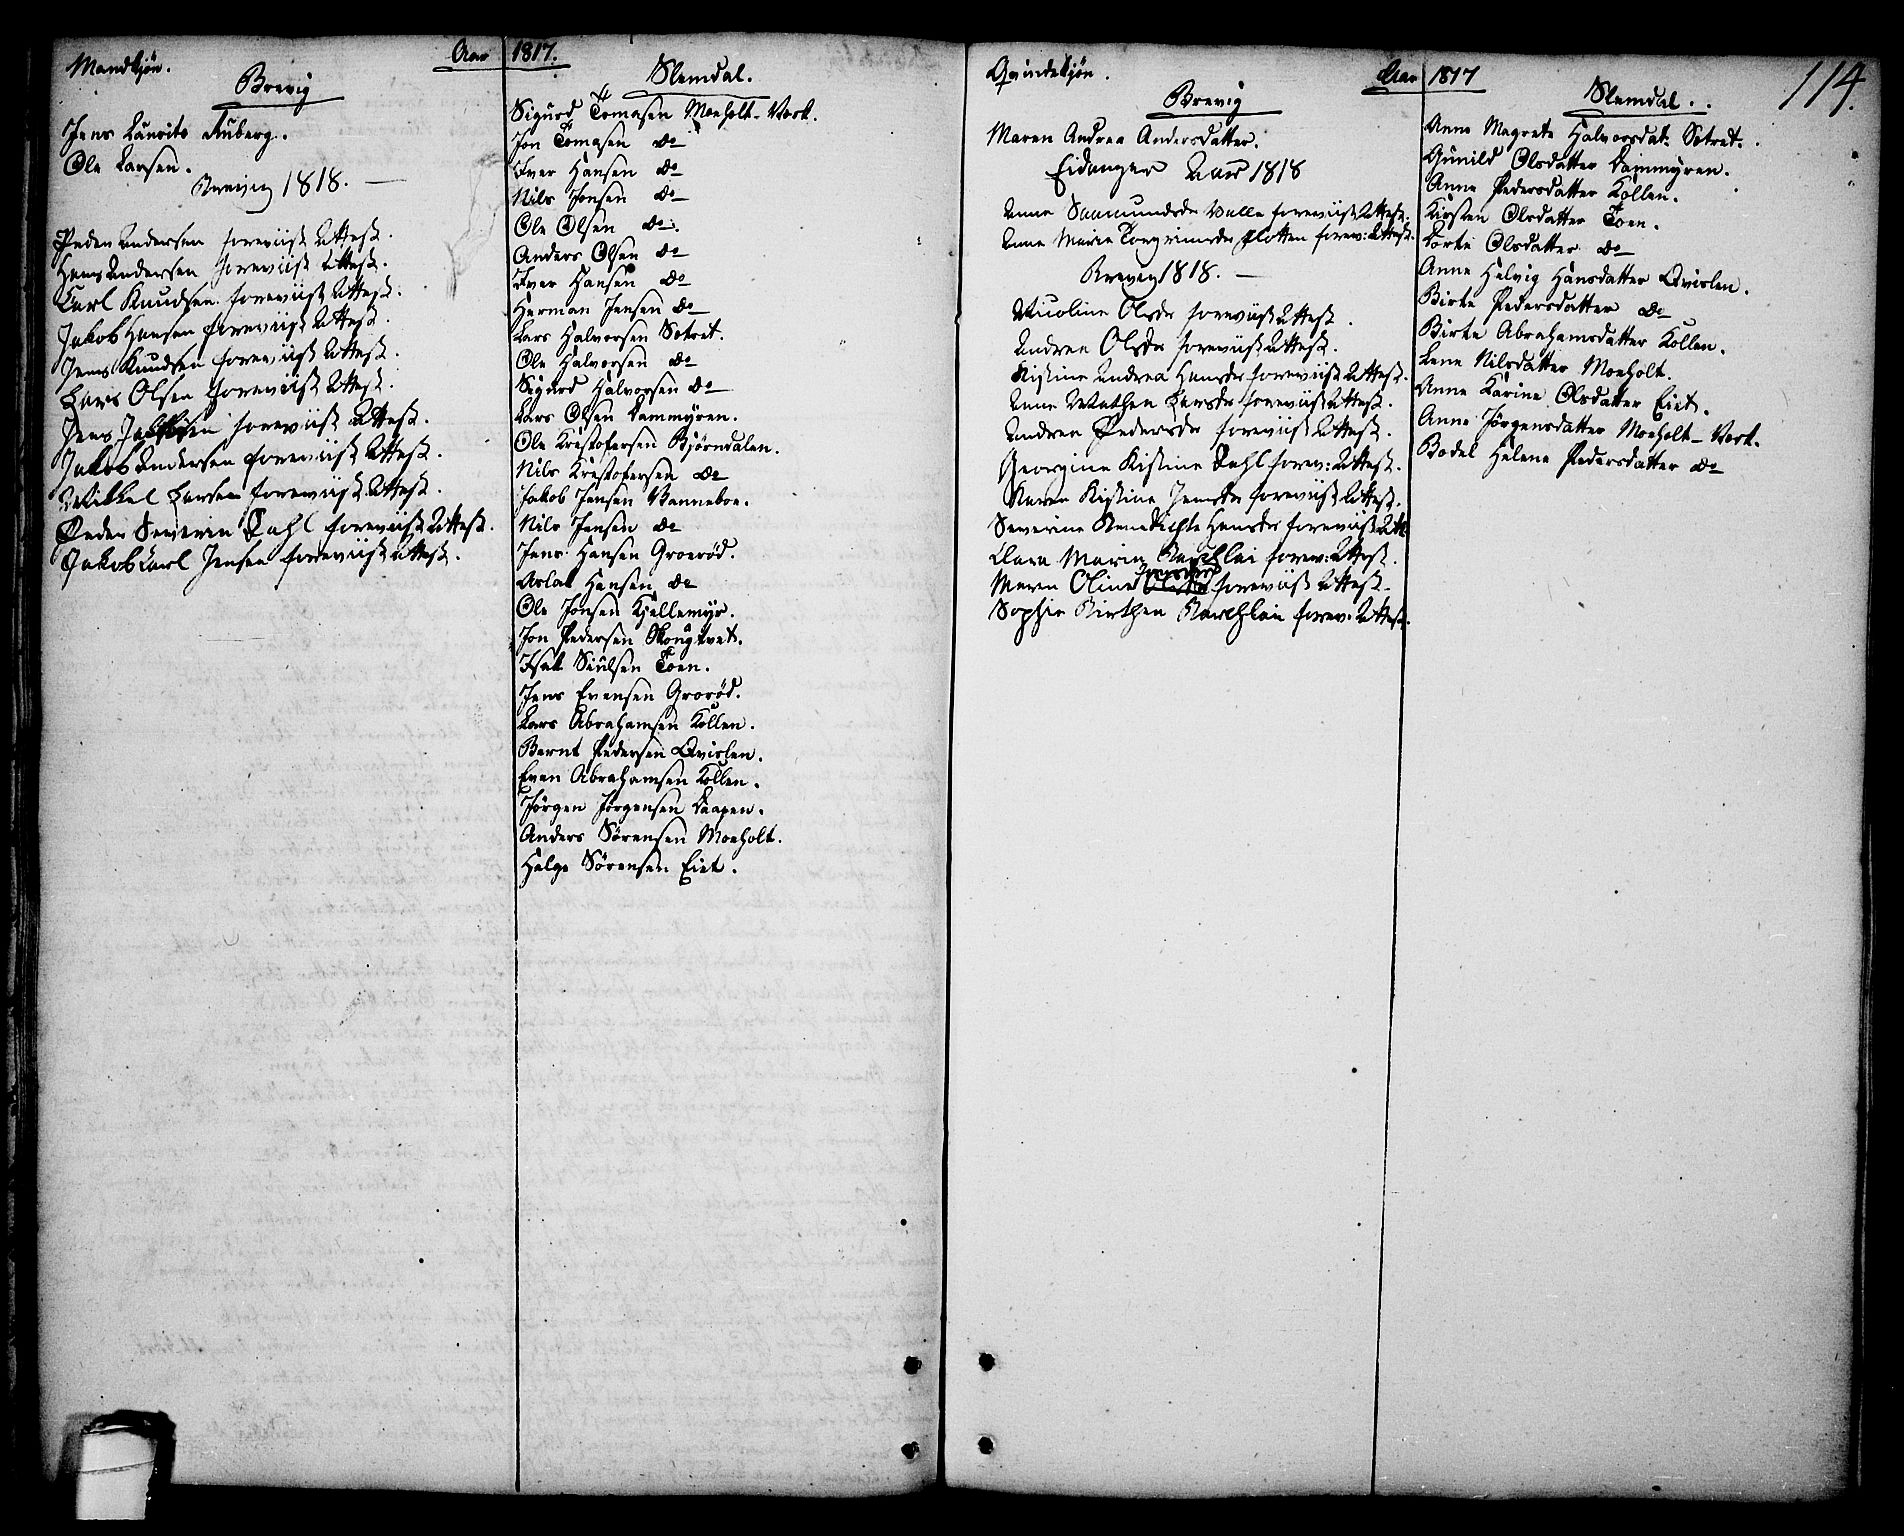 Mandkjøn.
Aar 1817.
Brevig
Jens Laurits Tuberg.
Ole Larsen.
Brevig 1818. —
Peder Andersen foreviist Attest.
Hans Andersen foreviist Attest.
Carl Knudsen foreviist Attest.
Jakob Hansen foreviist Attest.
Jens Knudsen foreviist Attest.
Lars Olsen foreviist Attest.
Jens foreviist Attest.
Jakob Andersen foreviist Attest.
Mikkel Larsen foreviist Attest.
Peder Severin Dahl foreviist Attest.
Jakob Carl Jensen foreviist Attest.
Slemdal.
Sigurd Tomasen Moeholt-Verk.
Jon Tomasen do
Iver Hansen do
Nils Jonsen do
Ole Olsen do.
Anders Olsen do
Iver Hansen do
Herman Jensen do
Lars Halvorsen Sotret.
Ole Halvorsen do
Sigurd Halvorsen do
Lars Olsen Dammyren.
Ole Kristofersen Bjørndalen.
Nils Kristofersen do
Jakob Jensen Vanneboe.
Nils Jensen do
Jens Hansen Groerød.
Aslak Hansen do
Ole Jonsen Kjellemyr.
Jon Pedersen Skougtvet.
Isak Siulsen Toen.
Jens Evensen Grorød.
Lars Abrahamsen Kollen.
Bernt Pedersen Qvislen.
Even Abrahamsen Kollen.
Jørgen Jørgensen Daapen.
Anders Sørensen Moeholt.
Helge Sørensen Eiet.
Qvindekjøn.
Aar 1817
114.
Brevig
Maren Andrea Andersdatter.
Eidanger Aar 1818
Anne Saamundsdr Valle foreviist Attest.
Anne Marie Torgrimsdr Flotten forev: Attest.
Brevig 1818. —
Nicoline Olsdr foreviist Attest.
Andrea Olsdr foreviist Attest.
Kistine Andrea Hansdr foreviist Attest.
Anne Mathea Larsdr foreviist Attest.
Andrea Pedersdr foreviist Attest.
Georgine Kistine Dahl forev: Attest.
Maren Kistine Jensdr foreviist Attest.
Severine Benedichte Hansdr foreviist Att
Clara Maria forev: Attest.
Maren Oline foreviist Attest.
Sophie Birthea forev: Attest.
Slemdal.
Anne Magrete Halvorsdat: Sotret.
Gunild Olsdatter Dammyren.
Anne Pedersdatter Kollen.
Kirsten Olsdatter Toen.
Dorte Olsdatter do
Anne Helvig Hansdatter Qvislen.
Birte Pedersdatter do
Birte Abrahamsdatter Kollen.
Lene Nilsdatter Moeholt.
Anne Karine Olsdatter Eiet.
Anne Jørgensdatter Moeholt-Verk.
Bodel Helene Pedersdatter do